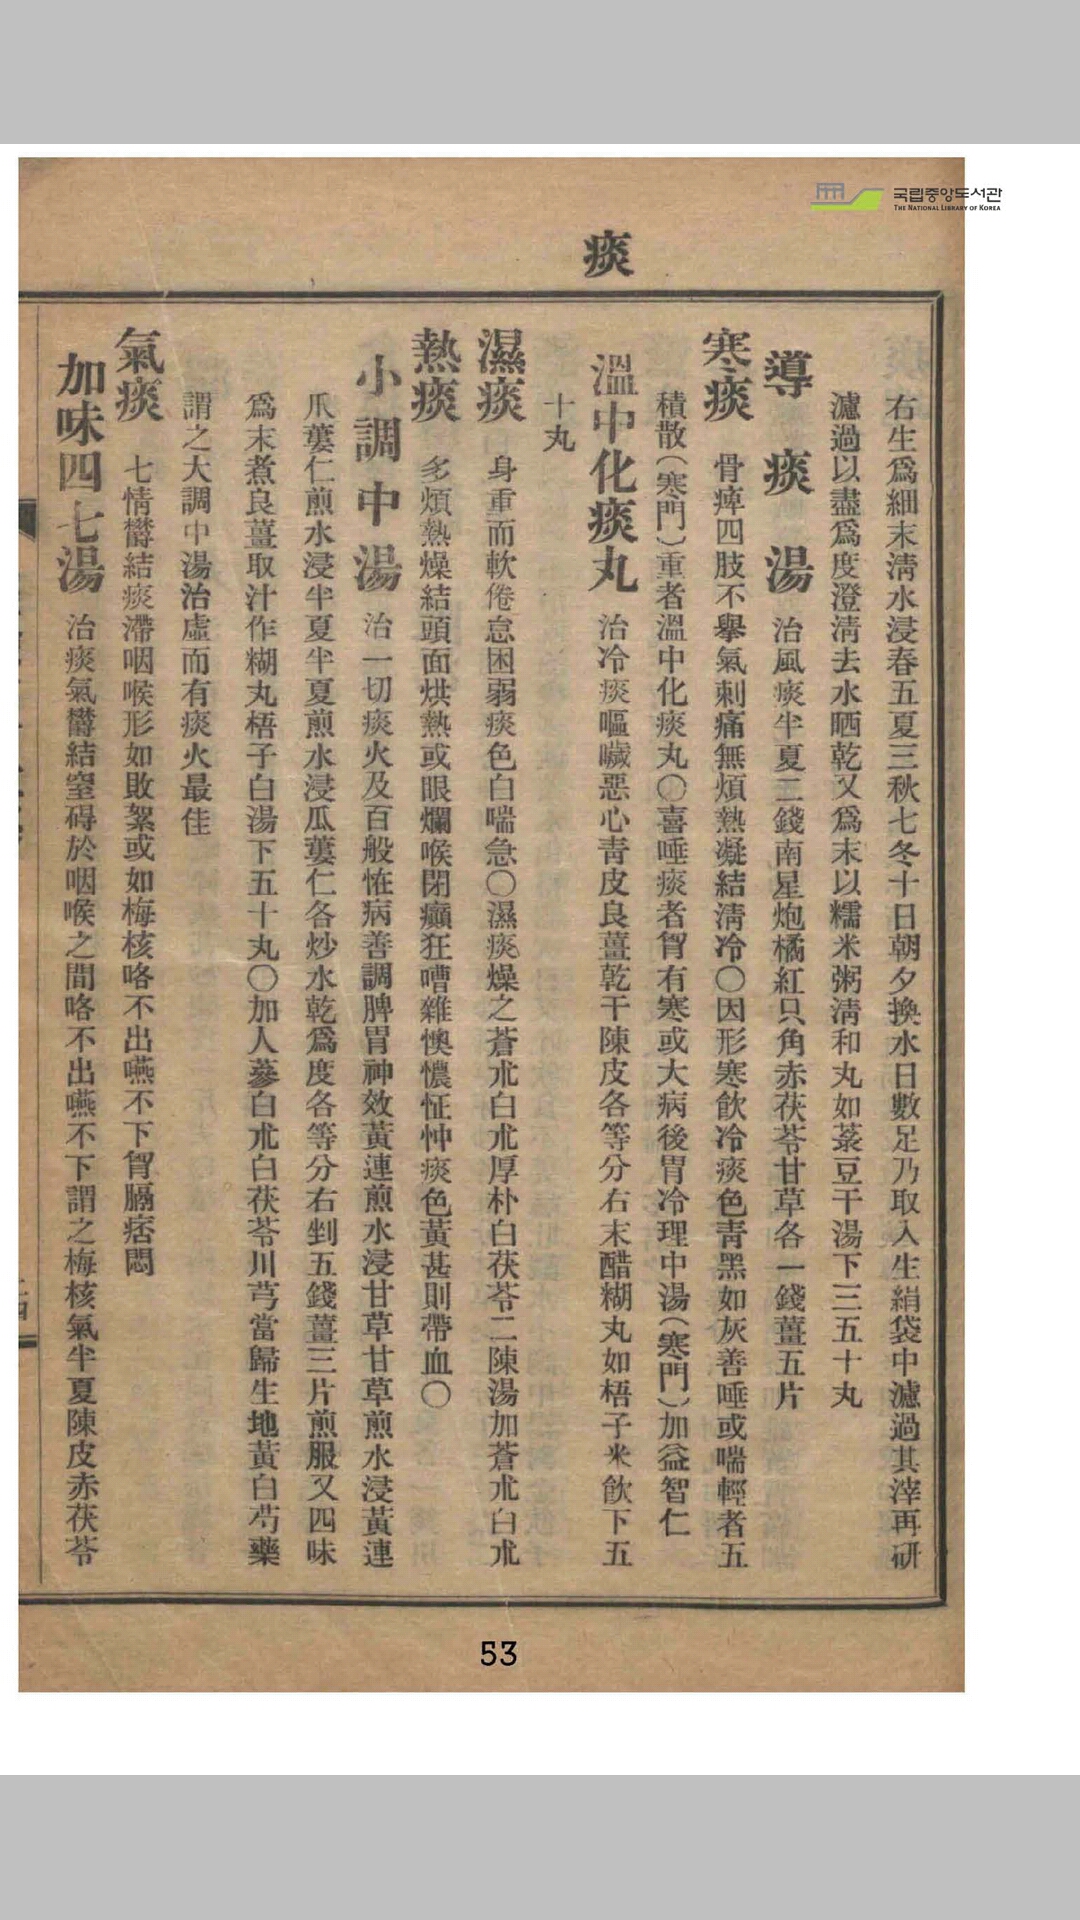 국립중앙도서관
THE NATIONAL LIBRARY OF KOREA
痰
右生爲細末淸水浸春五夏三秋七冬十日朝夕換水日數足乃取入生絹袋中濾過其滓再研
濾過以盡爲度澄淸去水晒乾又爲末以糯米粥淸和丸如菉豆干湯下三五十丸
導痰湯 治風痰半夏二錢南星炮橘紅只角赤茯苓甘草各一錢薑五片
寒痰 骨痺四肢不擧氣刺痛無煩熱凝結淸冷〇因形寒飮冷痰色靑黑如灰善唾或喘輕者五
積散(寒門)重者溫中化痰丸〇喜唾痰者胷有寒或大病後胃冷理中湯(寒門)加益智仁
溫中化痰丸 治冷痰嘔噦惡心靑皮良薑乾干陳皮各等分右末醋糊丸如梧子米飮下五
十丸
濕痰 身重而軟倦怠困弱痰色白喘急〇濕痰燥之蒼朮白朮厚朴白茯苓二陳湯加蒼朮白朮
熱痰 多煩熱燥結頭面烘熱或眼爛喉閉癲狂嘈雜懊憹怔忡痰色黃甚則帶血〇
小調中湯 治一切痰火及百般恠病善調脾胃神效黃連煎水浸甘草甘草煎水浸黃連
爪蔞仁煎水浸半夏半夏煎水浸瓜蔞仁各炒水乾爲度各等分右剉五錢薑三片煎服又四味
爲末煮良薑取汁作糊丸梧子白湯下五十丸〇加人蔘白朮白茯苓川芎當歸生地黃白芍藥
謂之大調中湯治虛而有痰火最佳
氣痰 七情欝結痰滯咽喉形如敗絮或如梅核咯不出嚥不下胷膈痞悶
加味四七湯 治痰氣欝結窒碍於咽喉之間咯不出嚥不下謂之梅核氣半夏陳皮赤茯苓
53